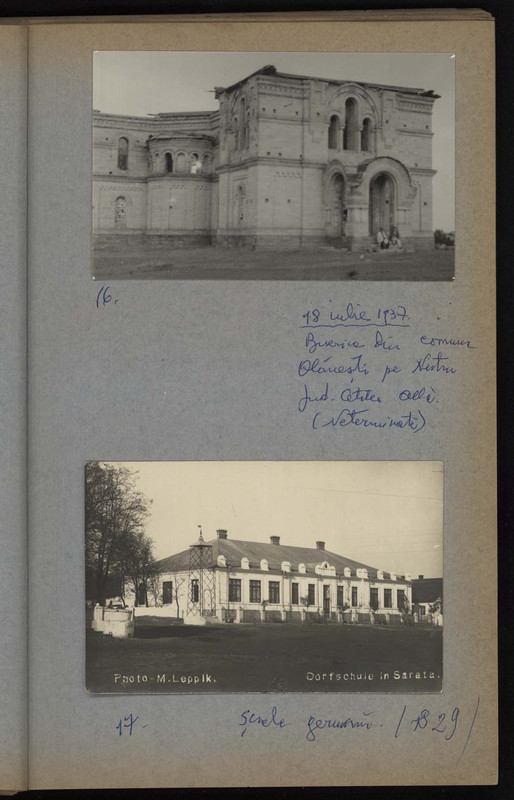 16.
18 iulie 1937.
Biserica din comuna
Olănești pe Nistru
Jud. Cetatea Albă.
(Neterminată)
Photo-M.Leppik.
Dorfschule in Sarata.
17.
Școala germană. (1829)